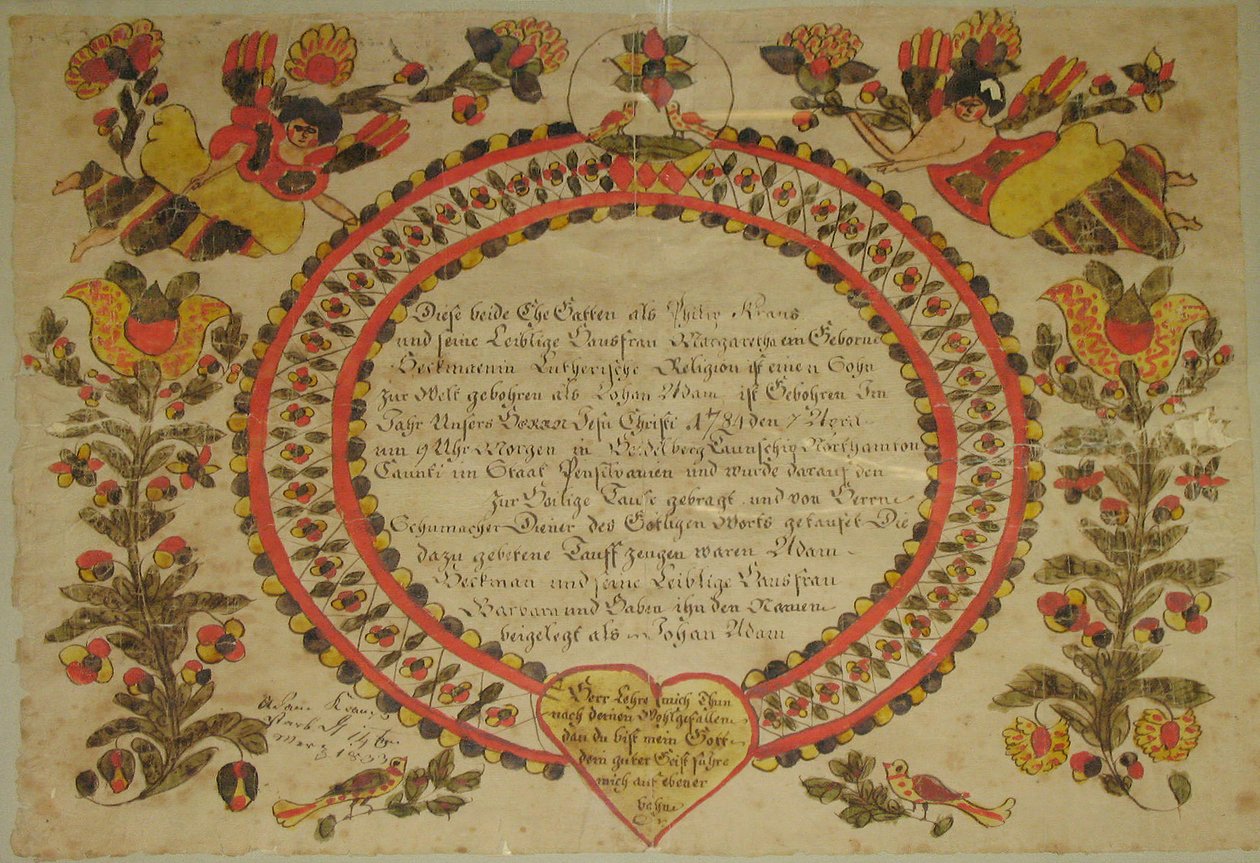 Diese beide Ehe Gatten als Philip Kraus
und seine Leiblige Hausfrau Margaretha ein Geborne
Beckmanin Lutherische Religion ist einen Sohn
zur Welt gebohren als Johan Adam ist Gebohren Im
Jahr Unsers Herrn Jesu Christi 1784 den 7
um 9 Uhr Morgen in Heidelberg Taunschip Northamton
Caunti im Staat Pensilvanien und wurde darauf den
zur Heilige Taufe gebragt und von Herrn
Schumacher Diener des Götligen Worts getaufet Die
dazu gebetene Tauff zeugen waren Adam
Beckman und seine Leiblige Hausfrau
Barbara und Haben ihn den Namen
beigelegt als Johan Adam
Herr Lehre mich Thun
nach deinen Wohlgefallen
dan du bist mein Gott
dein guter Geist führe
mich auf ebener
bahn
Adam Kraus
starb d 14te
Merz 1803